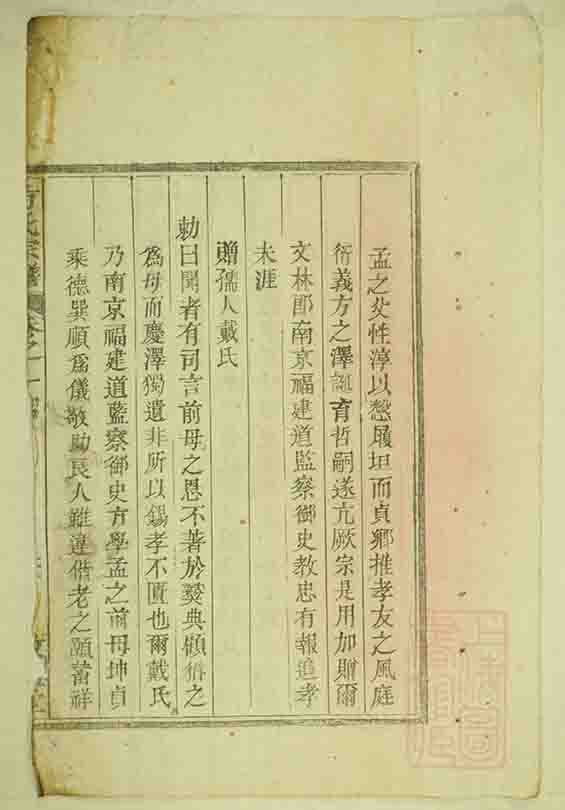 孟之父性淳以慤履坦而貞鄉推孝友之風庭
衍義方之澤誕育哲嗣遂亢厥宗是用加贈爾
文林郎南京福建道監察御史教忠有報追孝
未涯
贈孺人戴氏
勅曰聞者有司言前母之恩不著於彝典顧猶之
爲母而慶澤獨遺非所以錫孝不匱也爾戴氏
乃南京福建道監察御史方學孟之前母坤貞
乘德巽順爲儀敬助良人雖違偕老之願蓄祥
方氏宗譜 卷之一